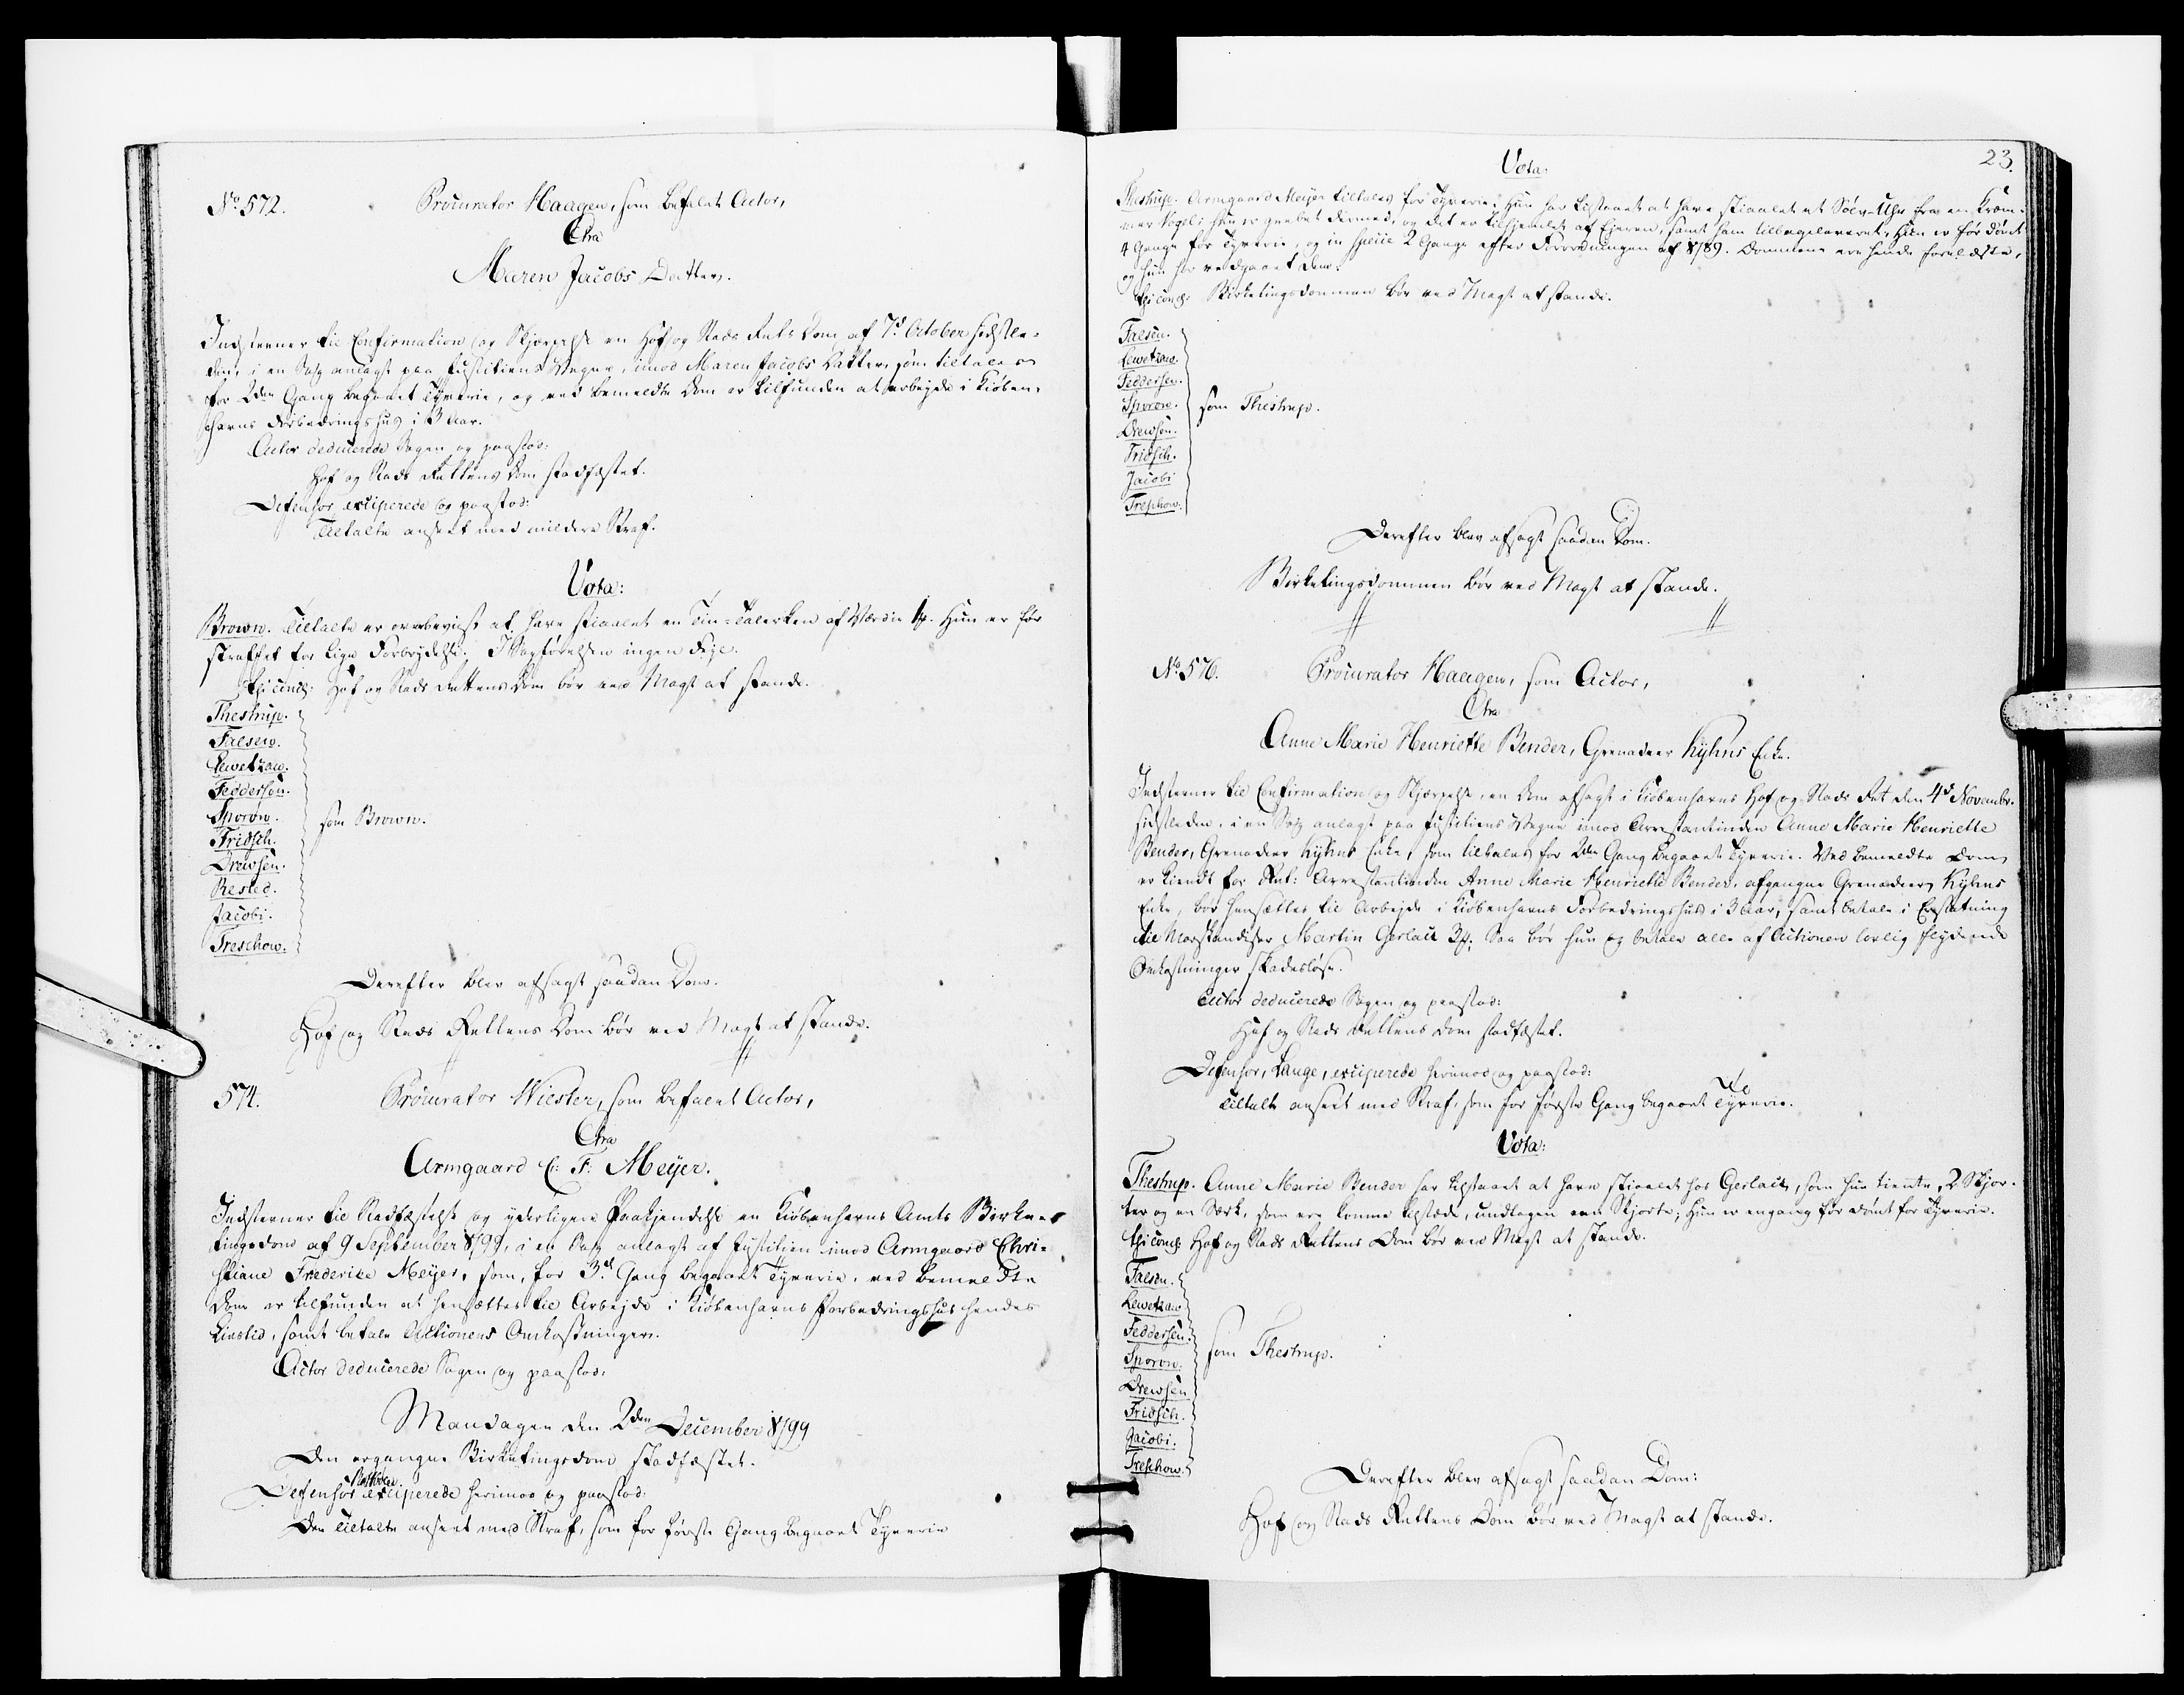 No. 572.
Procurator Haagen, som befalet Actor,
Ctra
Maren Jacobs Datter.
Indstevner til Confirmation og Skjærpelse en Hof og Stads Rets Dom af 7d October sidstle-
den, i en Sag anlagt paa Justitiens Vegne, imod Maren Jacobs Datter, som tiltales
for 2den Gang begaaet Tyverie, og ved bemeldte Dom er tilfunden at arbejde i Kiøben-
havns Forbedringshus i 3 Aar.
Actor deducerede Sagen og paastod:
Hof og Stads Rettens Dom stadfæstet.
Defensor exciperede og paastod:
Tiltalte anseet med mildere Straf.
Vota:
Brown. Tiltalte er overbeviist at have stiaalet en Tin-Talerken af Værdie Hun er før
straffet for lige Forbrydelse. I Sagførelsen ingen Feje.
thi concl: Hof og Stads Rettens Dom bør ved Magt at stande.
Thestrup.
Falsen.
Lewetzau.
Feddersen.
Sporon.
som Brown.
Fridsch.
Drewsen.
Rested.
Jacobi.
Treschow.
Derefter blev afsagt saadan Dom.
Hof og Stads Rettens Dom bør ved Magt at stande.
574.
Procurator Wiester, som befalet Actor,
Ctra
Armgaard C: F: Meyer.
Indstevner til Stadfæstelse og yderligere Paakjendelse en Kiøbenhavns Amts Birke-
tingsdom af 9 September 1799, i en Sag anlagt af Justitien imod Armgaard Chri-
stiane Frederike Meyer, som, for 3d Gang begaaet Tyverie, ved bemeldte
Dom er tilfunden at hensættes til Arbejde i Kiøbenhavns Forbedringshus hendes
Livstid, samt betale Actionens Omkostninger.
Actor deducerede Sagen og paastod:
Mandagen den 2den December 1799
Den ergangne Birketingsdom stadfæstet.
Defensor exciperede herimod og paastod:
Den Tiltalte anseet med Straf, som for første Gang begaaet Tyverie
23.
Vota.
Thestrup. Armgaard Meyer tiltales for Tyverie; Hun har tilstaaet at have stiaalet et Sølv-Uhr fra en Kræm-
mer Vogel; Hun er grebet dermed, og det er tilhjemlet af Ejeren, samt ham tilbageleveret. Hun er før dömt
4 Gange for Tyverie, og in specie 2 Gange efter Forordningen af 1789. Dommene ere hende forelæste,
og hun har vedgaaet dem.
thi concl: Birketingsdommen bør ved Magt at stande.
Falsen.
Lewetzau.
Feddersen.
Sporon.
som Thestrup.
Drewsen.
Fridsch.
Jacobi
Treschow.
Derefter blev afsagt saadan Dom.
Birketingsdommen bør ved Magt at stande.
No. 576.
Procurator Haagen, som Actor,
Ctra
Anne Marie Henriette Bender, Grenadeer Kyhns Enke.
Indstevner til Confirmation og Skjærpelse, en Dom afsagt i Kiøbenhavns Hof og Stads Ret den 4d Novembr.
sidstleden, i en Sag anlagt paa Justitiens Vegne imod Arrestantinden Anne Marie Henriette
Bender, Grenadeer Kyhns Enke, som tiltales for 2den Gang begaaet Tyverie. Ved bemeldte Dom
er kiendt for Ret: Arrestantinden Anne Marie Henriette Bender, afgangne Grenadeer Kyhns
Enke, bør hensættes til Arbejde i Kiøbenhavns Forbedringshus i 3 Aar, samt betale i Erstatning
til Marskandiser Martin Gerlait Saa bør hun og betale alle af Actionen lovlig flydende
Omkostninger skadesløse.
Actor deducerede Sagen og paastod:
Hof og Stads Rettens Dom stadfæstet.
Defensor, Lange, exciperede herimod og paastod:
Tiltalte anseet med Straf, som for første Gang begaaet Tyverie.
Vota:
Thestrup. Anne Marie Bender har tilstaaet at have stiaalet hos Gerlait, som hun tiente, 2 Skjor-
ter og en Særk, som ere komne tilstæde, undtagen een Skjorte; Hun er engang før dömt for Tyverie.
thi concl: Hof og Stads Rettens Dom bør ved Magt at stande.
Falsen.
Lewetzau
Feddersen.
Sporon.
som Thestrup.
Drewsen
Fridsch.
Jacobi.
Treschow.
Derefter blev afsagt saadan Dom:
Hof og Stads Rettens Dom bør ved Magt at stande.